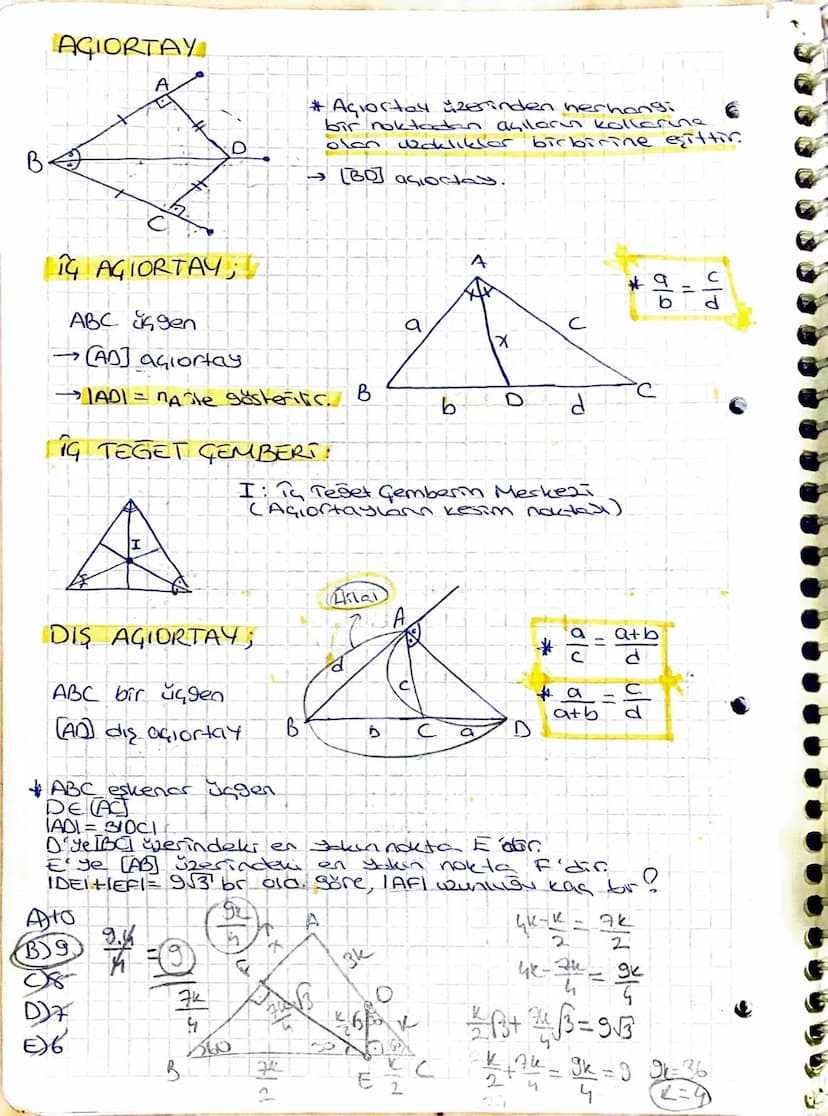 AÇIORTAY
A
B
D
C
* Açıortay üzerinden herhangi
bir noktadan açıların kollarına
olan uzaklıklar birbirine eşittir.
→ [BD] açıortay.
İÇ AÇIORTAY;
ABC üçgen
→ [AD] açıortay
→ |AD| = nA ile gösterilir.
A
a
c
x
B
b
D
d
C
* a/b = c/d
İÇ TEĞET ÇEMBERİ:
I : İç Teğet Çemberin Merkezi
(Açıortayların kesim noktası)
I
DIŞ AÇIORTAY;
ABC bir üçgen
[AD] dış açıortay
Hilal
A
d
c
B
b
C
a
D
* a/c = a+b/d
* a/a+b = c/d
* ABC eşkenar üçgen
D∈[AC]
|AD| = 3|DC|
D'ye [BC] üzerindeki en yakın nokta E'dir.
E'ye [AB] üzerindeki en yakın nokta F'dir.
|DE|+|EF| = 9√3 br old. göre, |AF| uzunluğu kaç br?
A) 10
B) 9
C) 8
D) 7
E) 6
9.4/4 = 9
9k/4
A
3k
D
k
7k/4
7k/4 √3
k/2 √3
B
60
30
7k/2
E
k/2
C
4k - k/2 = 7k/2
4k - 7k/4 = 9k/4
k/2 √3 + 7k/4 √3 = 9√3
k/2 + 7k/4 = 9k/4 = 9
9k=36
k=4